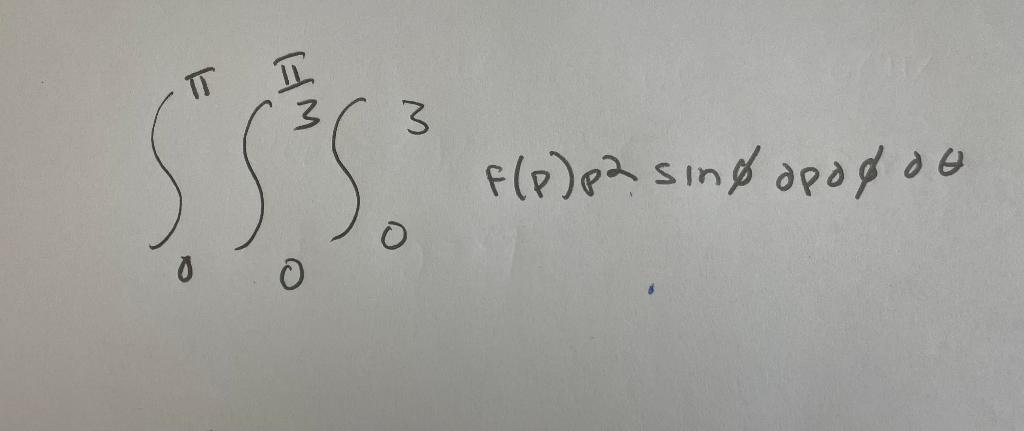 ∫₀^π ∫₀^(π/3) ∫₀^3 f(ρ)ρ² sinφ ∂ρ∂φ ∂θ